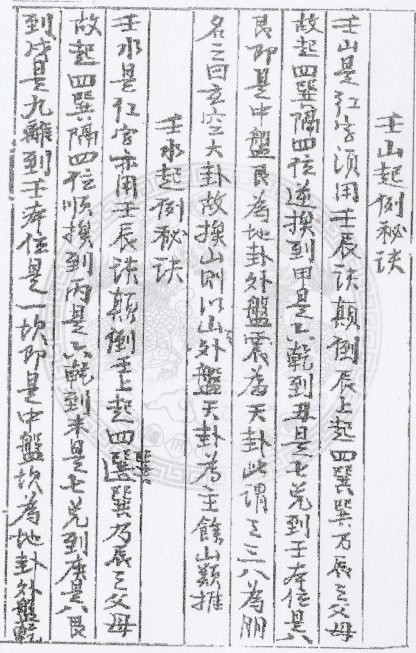 壬山起例秘訣
壬山是红字須用壬辰訣顛倒辰上起四巽巽乃辰之父母
故起四巽隔四位逆挨到甲是六乾到丑是七兌到壬本位是八
艮卽是中盤艮為地卦外盤震為天卦此謂之三八為朋
名之曰玄空大卦故挨山則以山外盤天卦為主餘山類推
壬水起例秘訣
壬水是红字亦用壬辰訣顛倒壬上起四巽巽乃辰之父母
故起四巽隔四位順挨到丙是六乾到未是七兌到庚是八艮
到戌是九離到壬本位是一坎卽是中盤坎為地卦外盤乾